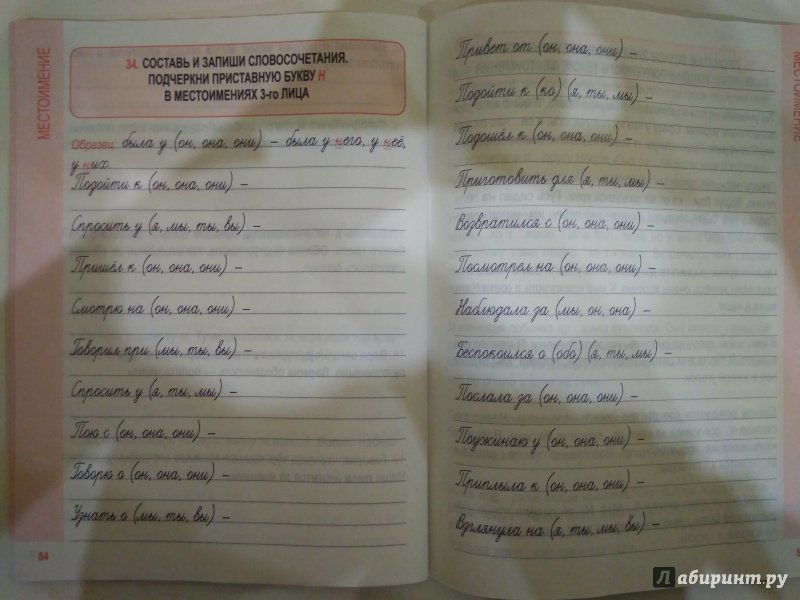 МЕСТОИМЕНИЕ
34. СОСТАВЬ И ЗАПИШИ СЛОВОСОЧЕТАНИЯ.
ПОДЧЕРКНИ ПРИСТАВНУЮ БУКВУ Н
В МЕСТОИМЕНИЯХ 3-го ЛИЦА
Образец: была у (он, она, они) – была у него, у неё,
у них.
Подойти к (он, она, они) –
Спросить у (я, мы, ты, вы) –
Пришёл к (он, она, они) –
Смотрю на (он, она, они) –
Говорил при (мы, ты, вы) –
Спросить у (я, ты, мы) –
Пою с (он, она, они) –
Говорю о (он, она, они) –
Узнать о (мы, ты, вы) –
64
Привет от (он, она, они) –
Подойти к (ко) (я, ты, мы) –
Подошёл к (он, она, они) –
Приготовить для (я, ты, мы) –
Возвратился с (он, она, они) –
Посмотрел на (он, она, они) –
Наблюдала за (мы, он, она) –
Беспокоился о (обо) (я, ты, мы) –
Послала за (он, она, они) –
Поужинаю у (он, она, они) –
Приплыла к (он, она, они) –
Взглянула на (я, ты, мы, вы) –
МЕСТОИМЕНИЕ
Лабиринт.ру